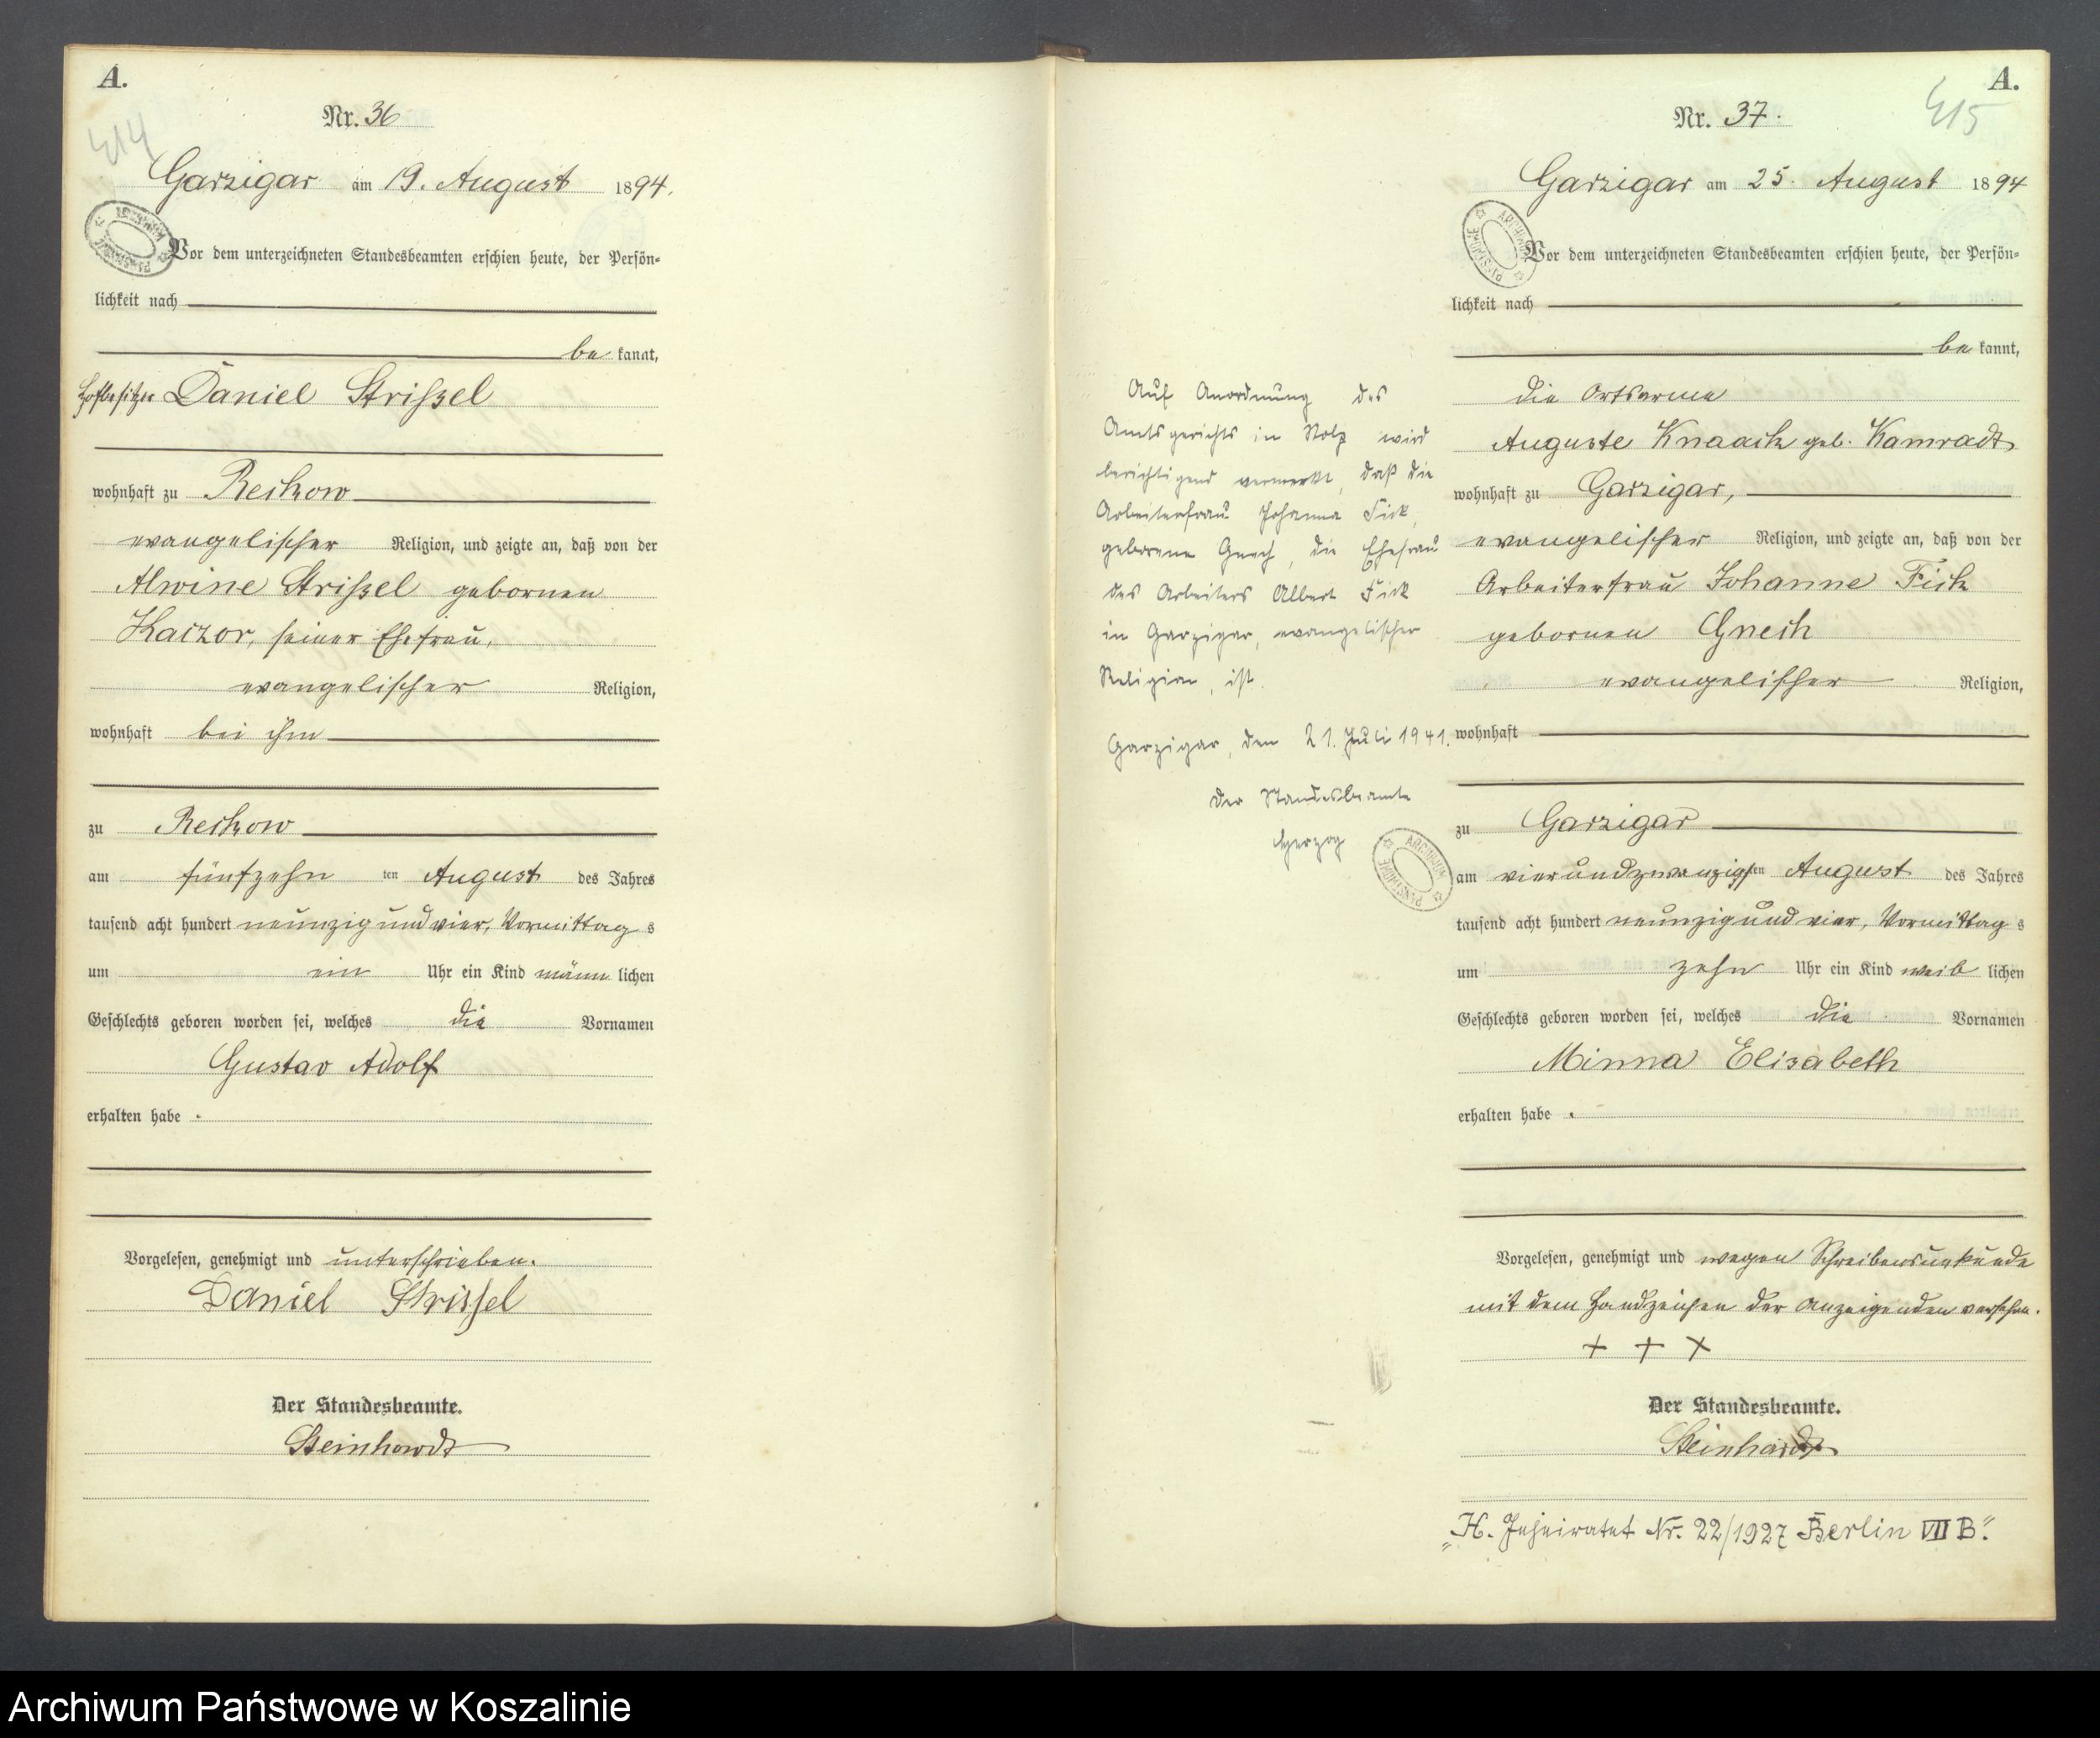 A.
Nr. 36
414
Garzigar am 19. August 1894.
Vor dem unterzeichneten Standesbeamten erschien heute, der Persön-
lichkeit nach
be kannt,
Hofbesitzer Daniel Strißel
wohnhaft zu Reckow
evangelischer Religion, und zeigte an, daß von der
Alwine Strißel gebornen
Kaczor, seiner Ehefrau,
evangelischer Religion,
wohnhaft bei ihm
zu Reckow
am fünfzehn ten August des Jahres
tausend acht hundert neunzig und vier, Vormittag s
um ein Uhr ein Kind männ lichen
Geschlechts geboren worden sei, welches die Vornamen
Gustav Adolf
erhalten habe.
Vorgelesen, genehmigt und unterschrieben.
Daniel Strissel
Der Standesbeamte.
Steinhardt
Auf Anordnung des
Amtsgerichts in Stolp wird
berichtigend vermerkt, daß die
Arbeiterfrau Johanna Fick,
geborene Gnech, die Ehefrau
des Arbeiters Albert Fick
in Garzigar, evangelischer
Religion, ist.
Garzigar, den 21. Juli 1941.
Der Standesbeamte
Herzog
ARCHIWUM PAŃSTWOWE
A.
Nr. 37.
415
Garzigar am 25. August 1894
Vor dem unterzeichneten Standesbeamten erschien heute, der Persön-
lichkeit nach
be kannt,
die Ortsarme
Auguste Knaack geb. Kamradt
wohnhaft zu Garzigar,
evangelischer Religion, und zeigte an, daß von der
Arbeiterfrau Johanne Fick
gebornen Gnech
evangelischer Religion,
wohnhaft
zu Garzigar
am vierundzwanzigsten August des Jahres
tausend acht hundert neunzig und vier, Vormittag s
um zehn Uhr ein Kind weib lichen
Geschlechts geboren worden sei, welches die Vornamen
Minna Elisabeth
erhalten habe.
Vorgelesen, genehmigt und wegen Schreibensunkunde
mit dem Handzeichen der Anzeigenden versehen.
+ + +
Der Standesbeamte.
Steinhardt
"H. Geheiratet Nr. 22/1927 Berlin VII B".
Archiwum Państwowe w Koszalinie